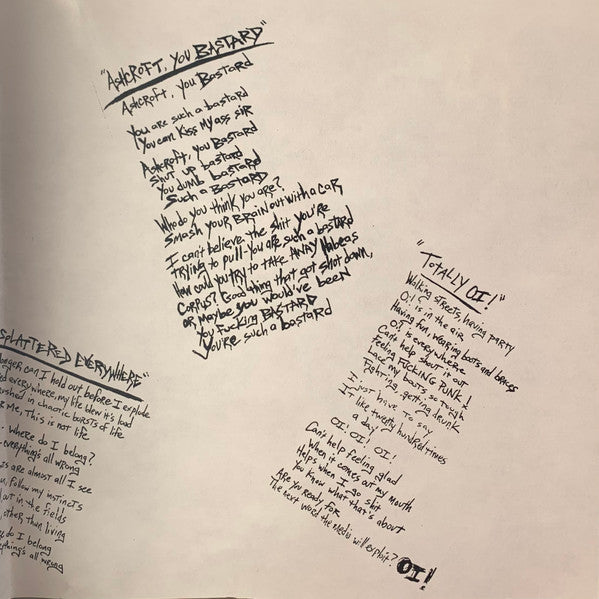 "ASHCROFT, YOU BASTARD"
Ashcroft, you Bastard
You are such a bastard
You can kiss my ass sir
Ashcroft, you Bastard
Shut up bastard
You dumb bastard
Such a BASTARD
Who do you think you are?
Smash your BRAIN out with a CAR
I can't believe the shit you're
trying to pull you are such a bastard
How could you try to take AWAY Habeas
Corpus? Good thing that got shot down,
or maybe you would've been
You Fucking BASTARD
You're such a bastard
"TOTALLY OI!"
Walking STREETS, having PARTY
Oi! is in the air
Having fun, wearing boots and braces
Oi! is everywhere
Can't help shout it out
Feeling FUCKING PUNK!
Lace my boots, so tight
Fighting, getting drunk
I just have to say
It like twenty hundred times
a day
OI! OI! OI!
Can't help feeling glad
When it comes out my mouth
Helps when I go shit
You know what that's about
Are you ready for
The next word the media will exploit? OI!
SPLATTERED EVERYWHERE"
longer can I hold out before I explode
everywhere, my life blew it's load
in chaotic bursts of life
me, This is not life
Where do I belong?
everything's all wrong
are almost all I see
follow my instincts
out in the fields
other than living
do I belong
all wrong